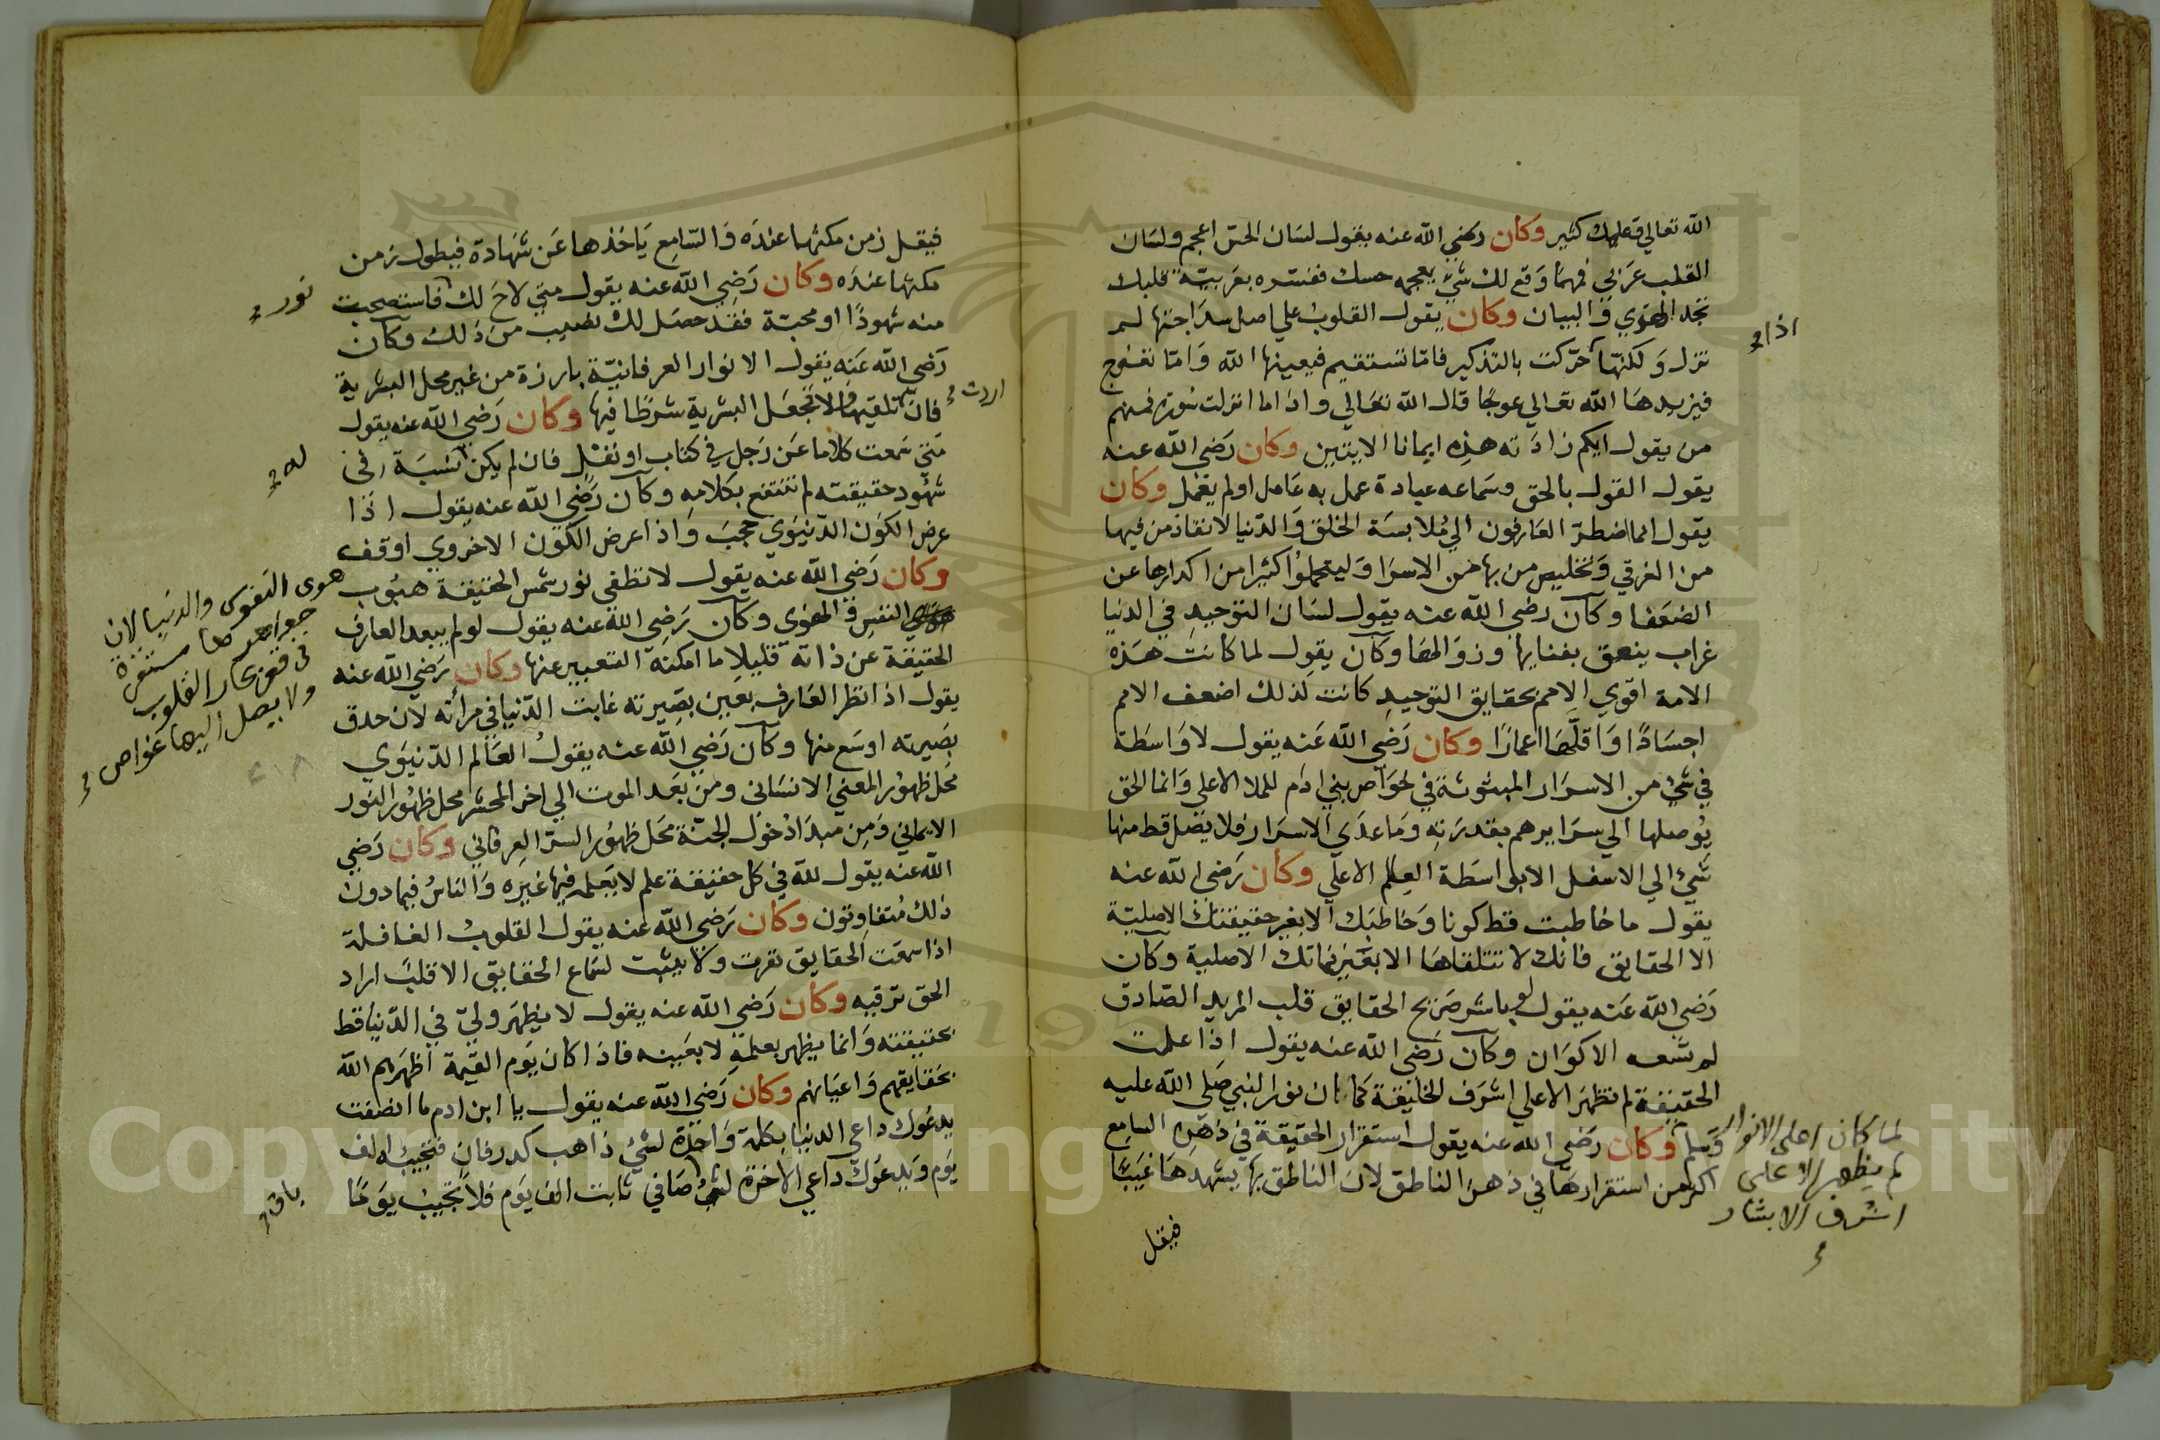 الله تعالي قعليك كثير وكان رضي الله عنه يقول لسان الحس اعجم ولسان
القلب عربي فمهما وقع لك شي يعجمه حسك ففسره بعربية قلبك
تجد الهدي والبيان وكان يقول القلوب علي اصل سذاجتها لم
تزل ولكنها حركت بالتذكير فاما تستقيم فيعينها الله واما تعوج
فيزيدها الله تعالي عوجا قال الله تعالي واذا ما انزلت سورة فمنهم
من يقول ايكم زادته هذه ايمانا الايتين وكان رضي الله عنه
يقول القول بالحق وسماعه عبادة عمل به عامل اولم يعمل وكان
يقول انما اضطر العارفون الي ملابسة الخلق والدنيا لانقاذ من فيها
من الغرقي وتخليص من بها من الاسرا وليتحملوا كثيرا من اكدارها عن
الضعفا وكان رضي الله عنه يقول لسان التوحيد في الدنيا
غراب ينعق بفنايها وزوالها وكان يقول لما كانت هذه
الامة اقوي الامم بحقايق التوحيد كانت لذلك اضعف الامم
اجسادا واقلها اعمارا وكان رضي الله عنه يقول لا واسطة
في شي من الاسرار المبثوثة في خواص بني ادم للملا الاعلي وانما الحق
يوصلها الي سرايرهم بقدرته وما عدي الاسرار فلا يصل قط منها
شي الي الاسفل الا بواسطة العالم الاعلي وكان رضي الله عنه
يقول ما خاطبت قط كونا وخاطبك الا بغير حقيقتك الاصلية
الا الحقايق فانك لا تتلقاها الا بغير ذاتك الاصلية وكان
رضي الله عنه يقول لو باشر صريح الحقايق قلب المريد الصادق
لم تسعه الاكوان وكان رضي الله عنه يقول اذا علمت
الحقيقة لم تظهر الا علي اشرف الخليقة كما كان نور النبي صلي الله عليه
وسلم وكان رضي الله عنه يقول استقرار الحقيقة في ذهن السامع
اكثر من استقرارها في ذهن الناطق لان الناطق بها يشهدها غيبا
فيقل
اذا
لما كان اعلي الانوار
لم يظهر الا علي
اشرف الابشار
فيقل زمن مكثها عنده والسامع ياخذها عن شهادة فيطول زمن
مكثها عنده وكان رضي الله عنه يقول متي لاح لك فاستصحبت
منه شهودا او محبة فقد حصل لك نصيب من ذلك وكان
رضي الله عنه يقول الانوار العرفانية بارزة من غير محل البشرية
فان تلقيها والا فجعل البشرية شرطا فيها وكان رضي الله عنه يقول
متي سمعت كلاما عن رجل في كتاب او نقل فان لم يكن نسبة في
شهود حقيقته لم تنتفع بكلامه وكان رضي الله عنه يقول اذا
عرض الكون الدنيوي حجب واذا عرض الكون الاخروي اوقف
وكان رضي الله عنه يقول لا تطفي نور شمس الحقيقة هبوب
النفس والهوي وكان رضي الله عنه يقول لو لم يبعد العارف
الحقيقة عن ذاته قليلا ما امكنه التعبير عنها وكان رضي الله عنه
يقول اذا نظر العارف بعين بصيرته غابت الدنيا في مرأته لان حدق
بصيرته اوسع منها وكان رضي الله عنه يقول العالم الدنيوي
محل ظهور المعني الانساني ومن بعد الموت الي اخر المحشر محل ظهور النور
الايماني ومن مبدا دخول الجنة محل ظهور السر العرفاني وكان رضي
الله عنه يقول لله في كل حقيقة علم لا يعلمه فيها غيره والناس فيما دون
ذلك متفاوتون وكان رضي الله عنه يقول القلوب الغافلة
اذا سمعت الحقايق نفرت ولا يثبت لسماع الحقايق الا قلب اراد
الحق ترقيه وكان رضي الله عنه يقول لا يظهر ولي في الدنيا قط
بحقيقته وانما يظهر بعلمه لا بعينه فاذا كان يوم القيمة اظهرهم الله
بحقايقهم واعيانهم وكان رضي الله عنه يقول يا ابن ادم ما انصفت
يدعوك داعي الدنيا بكلمة واحدة لشي ذاهب كدر فان فتجيبه الف
يوم ويدعوك داعي الاخرة لشي صافي ثابت الف يوم فلا تجيب يوما
نور
اردت
له
هوي النفوس والدنيا لان
جواهرها مستقرة
في قعر بحار القلوب
ولا يصل اليها غواص
٤١٨
باق
Copyright © King Saud University